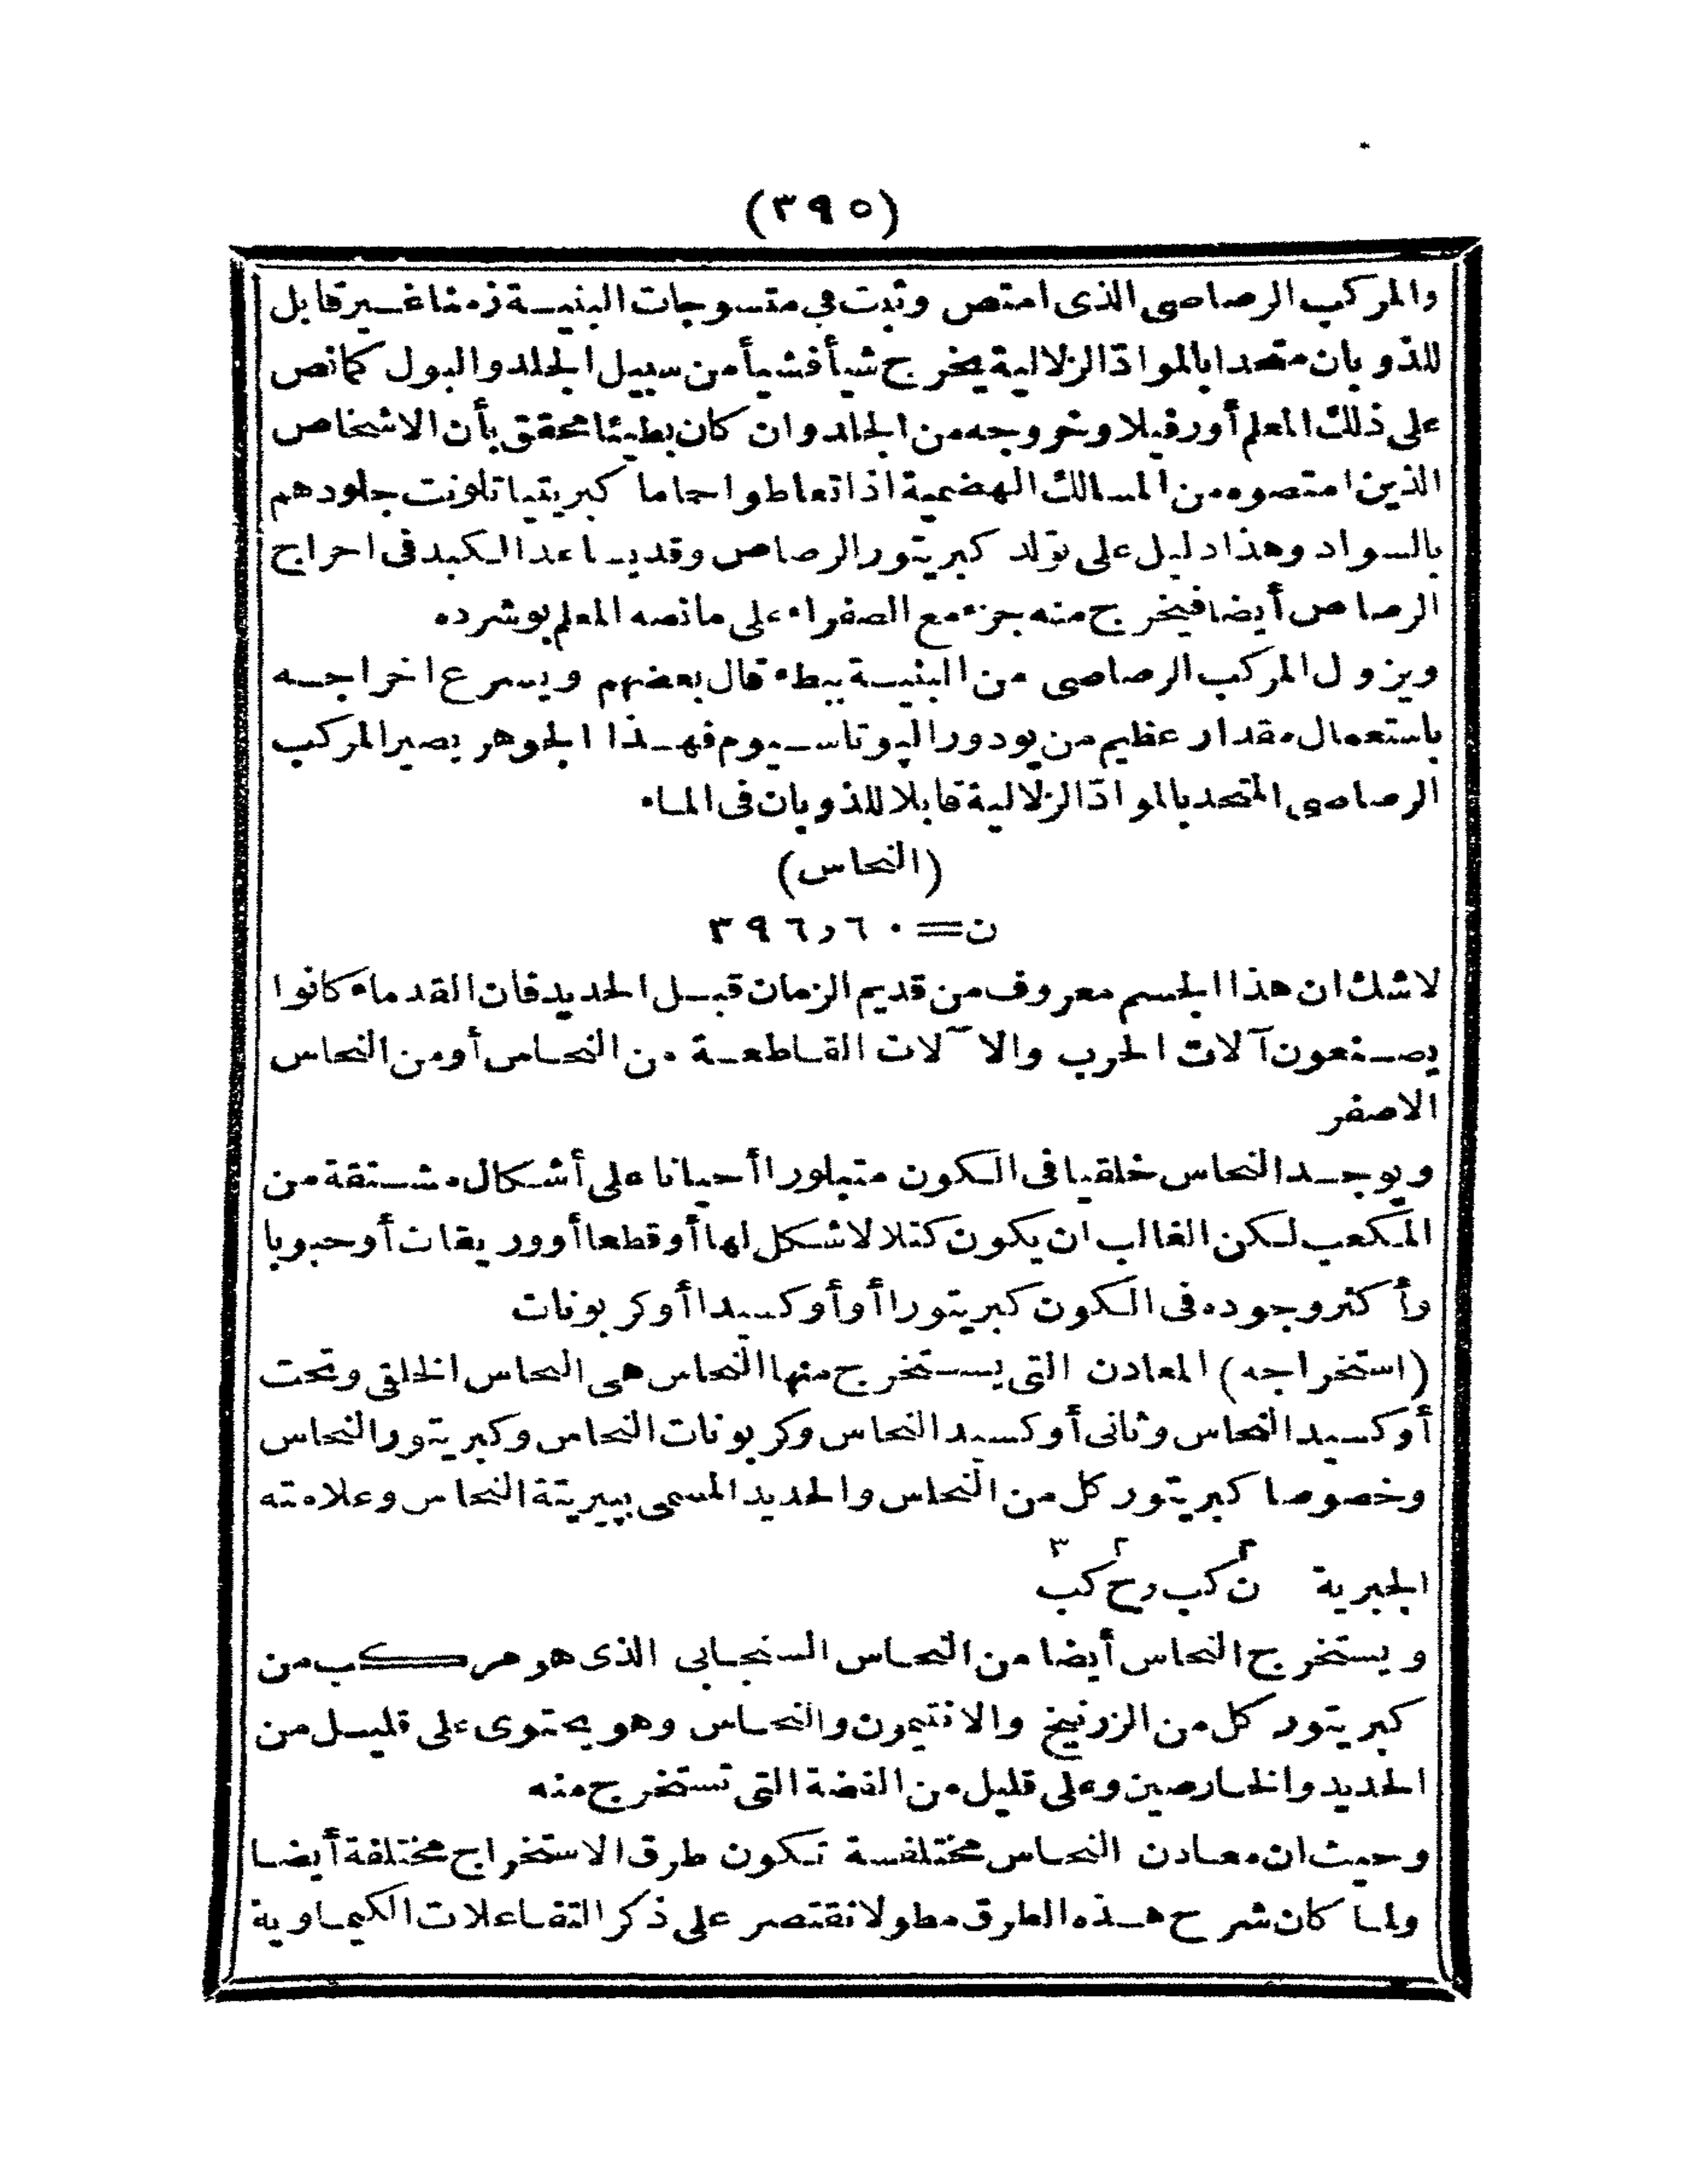 (٣٩٥)
والمركب الرصاصى الذى امتص وثبت في منسوجات البنيـة زمنا غـير قابل
للذوبان متحدا بالموادّ الزلالية يخرج شيأ فشيأ من سبيل الجلد والبول كما نص
على ذلك المعلم أورفيلا وخروجه من الجلد وان كان بطيئا محقق بأن الاشخاص
الذين امتصوه من المسالك الهضمية اذا تعاطوا حماما كبريتيا تلونت جلودهم
بالسواد وهذا دليل على تولد كبريتور الرصاص وقد يساعد الكبد فى اخراج
الرصاص أيضا فيخرج منه جزء مع الصفراء على ما نصه المعلم بوشرده
ويزول المركب الرصاصى من البنيـة ببطء قال بعضهم ويسرع اخراجـه
باستعمال مقدار عظيم من يودور الپوتاسـيوم فهـذا الجوهر يصير المركب
الرصاصى المتحد بالموادّ الزلالية قابلا للذوبان فى الماء
(النحاس)
ن = ٣٩٦,٦٠
لاشك ان هذا الجسم معروف من قديم الزمان قبـل الحديد فان القدماء كانوا
يصـنعون آلات الحرب والآلات القـاطعـة من النحـاس أو من النحاس
الاصفر
ويوجـد النحاس خلقيا فى الـكون متبلورا أحيانا على أشـكال مشـتقة من
المـكعب لـكن الغالب ان يكون كتلا لا شـكل لها أو قطعا أو وريقات أو حبوبا
وأكثر وجوده فى الـكون كبريتورا أو أوكسيدا أو كربونات
(استخراجه) المعادن التى يسـتخرج منها النحاس هى النحاس الخلقى وتحت
أوكسيد النحاس وثانى أوكسيد النحاس وكربونات النحاس وكبريتور النحاس
وخصوصا كبريتور كل من النحاس والحديد المسمى بپيريتة النحاس وعلامته
الجبرية ن٢ كب رح٢ كب٣
ويستخرج النحاس أيضا من النحـاس السنجـابى الذى هو مركـب من
كبريتور كل من الزرنيخ والانتيمون والنحـاس وهو يحتوى على قليـل من
الحديد والخـارصين وعلى قليل من الفضة التى تستخرج منه
وحيث ان معـادن النحـاس مختلفـة تـكون طرق الاستخراج مختلفة أيضـا
ولمـا كان شرح هـذه الطرق مطولا نقتصر على ذكر التفـاعلات الـكيماوية